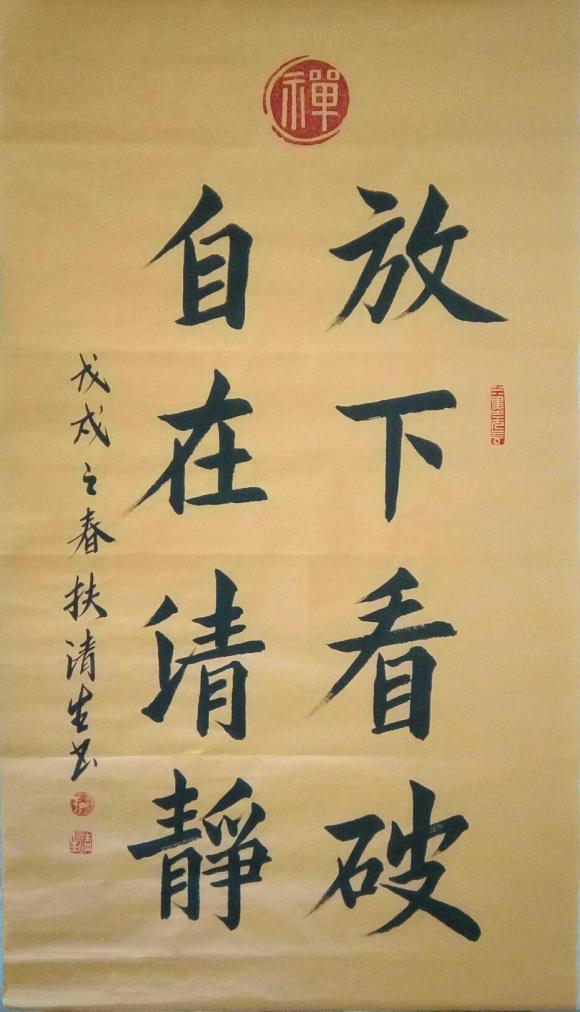 禪
放下看破
自在清靜
戊戌之春扶清生书